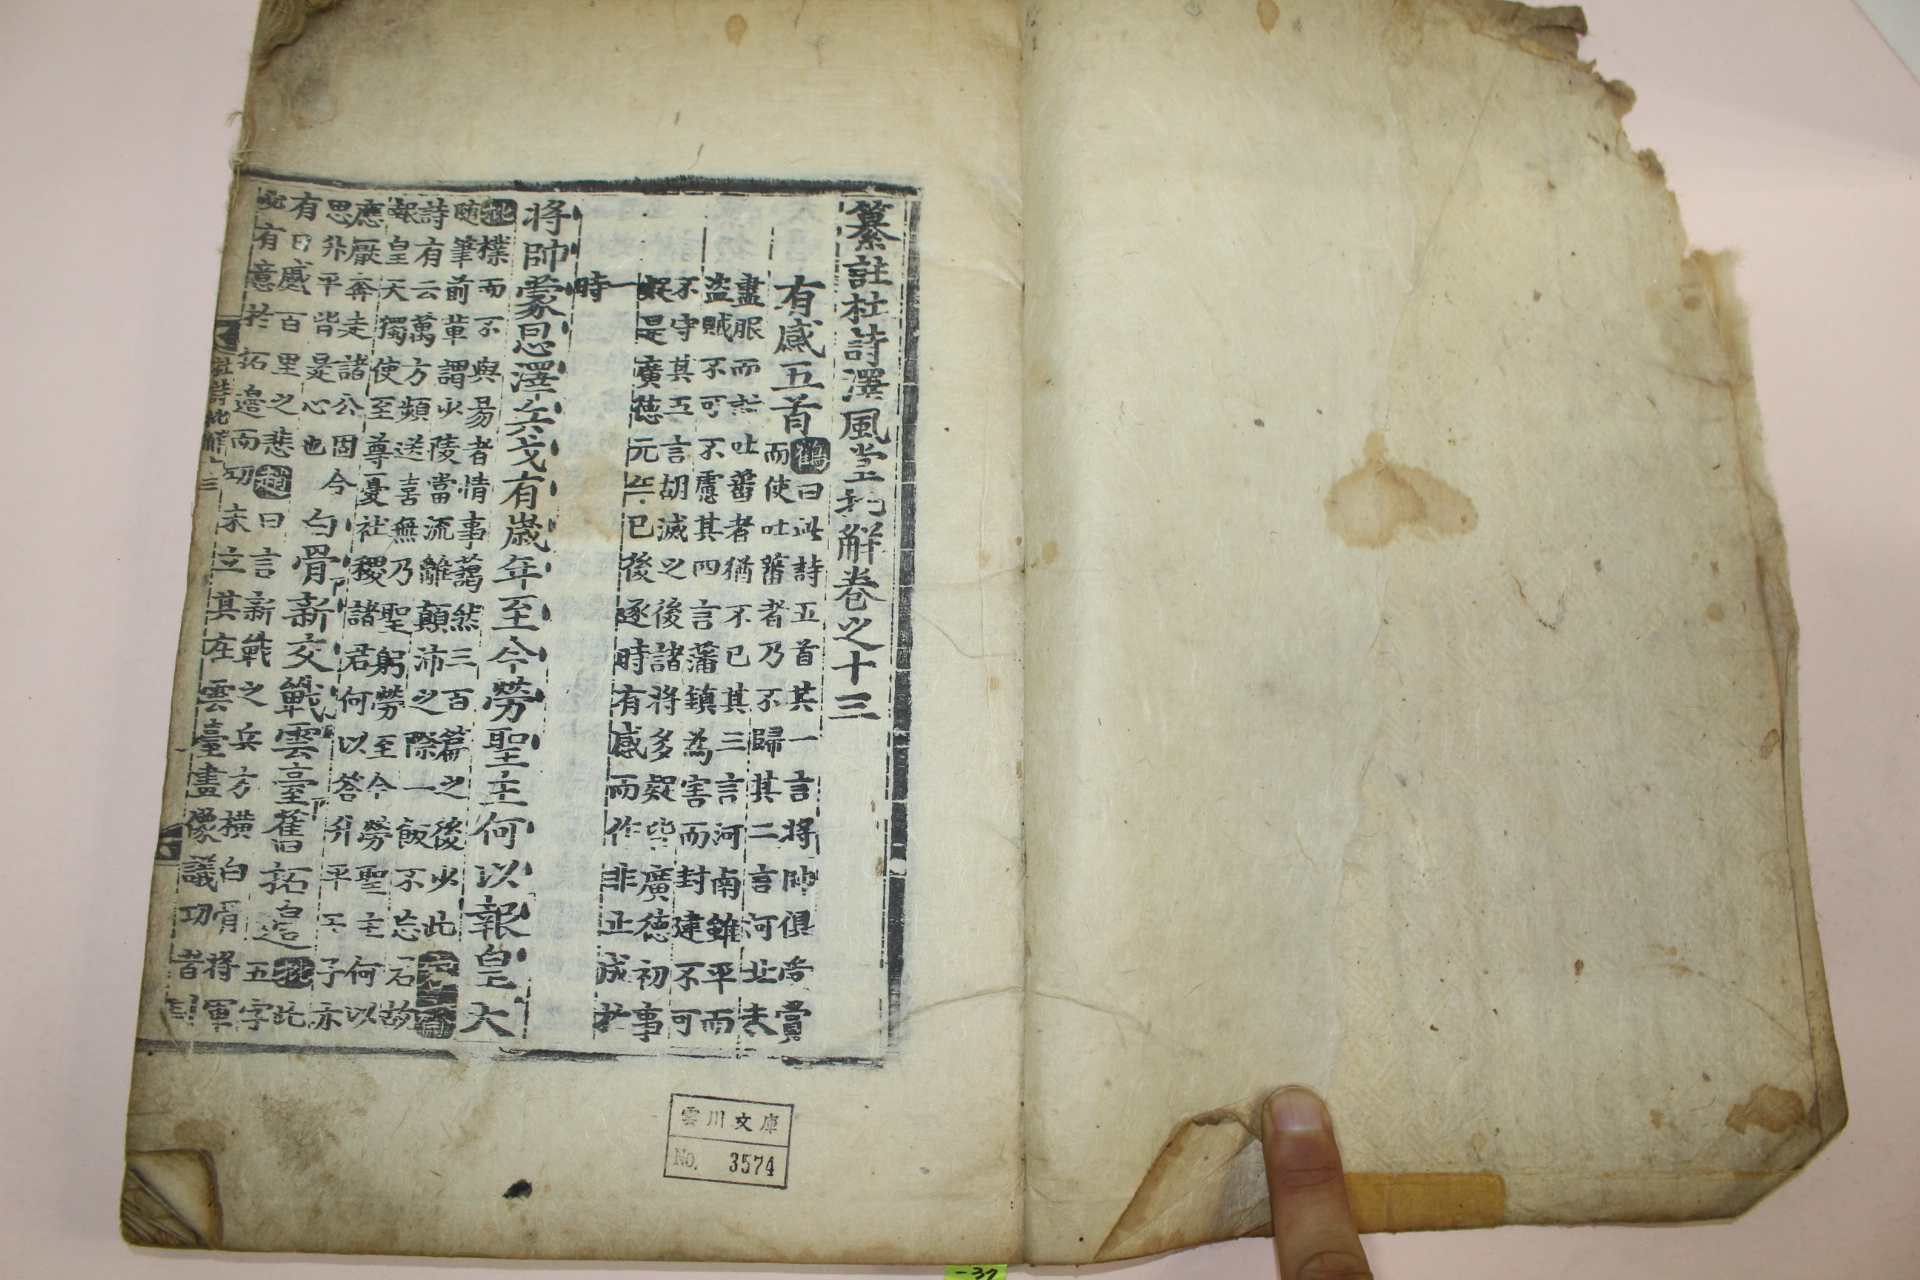 纂註杜詩澤風堂批解卷之十三
有感五首
鶴曰此詩五首其一言将帥俱尚賞
而使吐蕃者乃不歸其二言河北未
盡服而討吐蕃者猶不已其三言河南雖平而
盗賊不可不慮其四言藩鎮為害而封建不可
不守其五言胡滅之後諸将多疑皆廣德初事
疑是廣德元年已後逐時有感而作非止成於
一
時
将帥蒙恩澤兵戈有歲年至今勞聖主何以報皇天
批樸而不與易者情事藹然三百篇之後少此
随筆前軰謂少陵當流離顛沛之際一飯不忘君故
詩有云萬方頻送喜無乃聖躬勞至今勞聖主何以
報皇天獨使至尊憂社稷諸君何以答升平天子亦
應厭奔走諸公固合
思升平皆是心也
白骨新交戰雲臺舊拓邊
批此
五字
有日感百里之悲趙曰言新戰之兵方横白骨将軍
有意於拓邊而功未立其在雲臺畫像議功者
杜詩批解 三
雲川文庫
No. 3574
-37